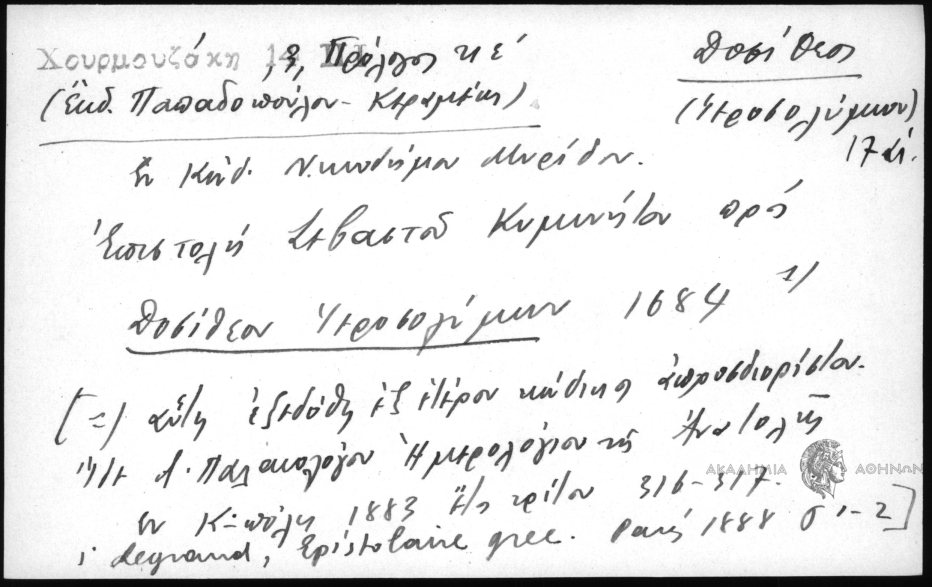 Χουρμουζάκη 13, Πρόλογος κέ
(Ἐκδ. Παπαδοπούλου - Κεραμέως)
Δοσίθεος
(Ἱεροσολύμων)
17 αἰ.
ἐν Κώδ. Νικοδήμου
Ἐπιστολή Σεβαστοῦ Κυμινήτου πρός
Δοσίθεον Ἱεροσολύμων 1684 1)
[1) αὕτη ἐξεδόθη ἐξ ἑτέρου κώδικος ἀπροσδιορίστου.
Α. Παλαιολόγου Ἡμερολόγιον τῆς Ἀνατολῆς
ἐν Κ-πόλει 1883 ἔτος τρίτον 316-317.
Legrand, Epistolaire grec. Paris 1888 σ 1-2]
ΑΚΑΔΗΜΙΑ ΑΘΗΝΩΝ